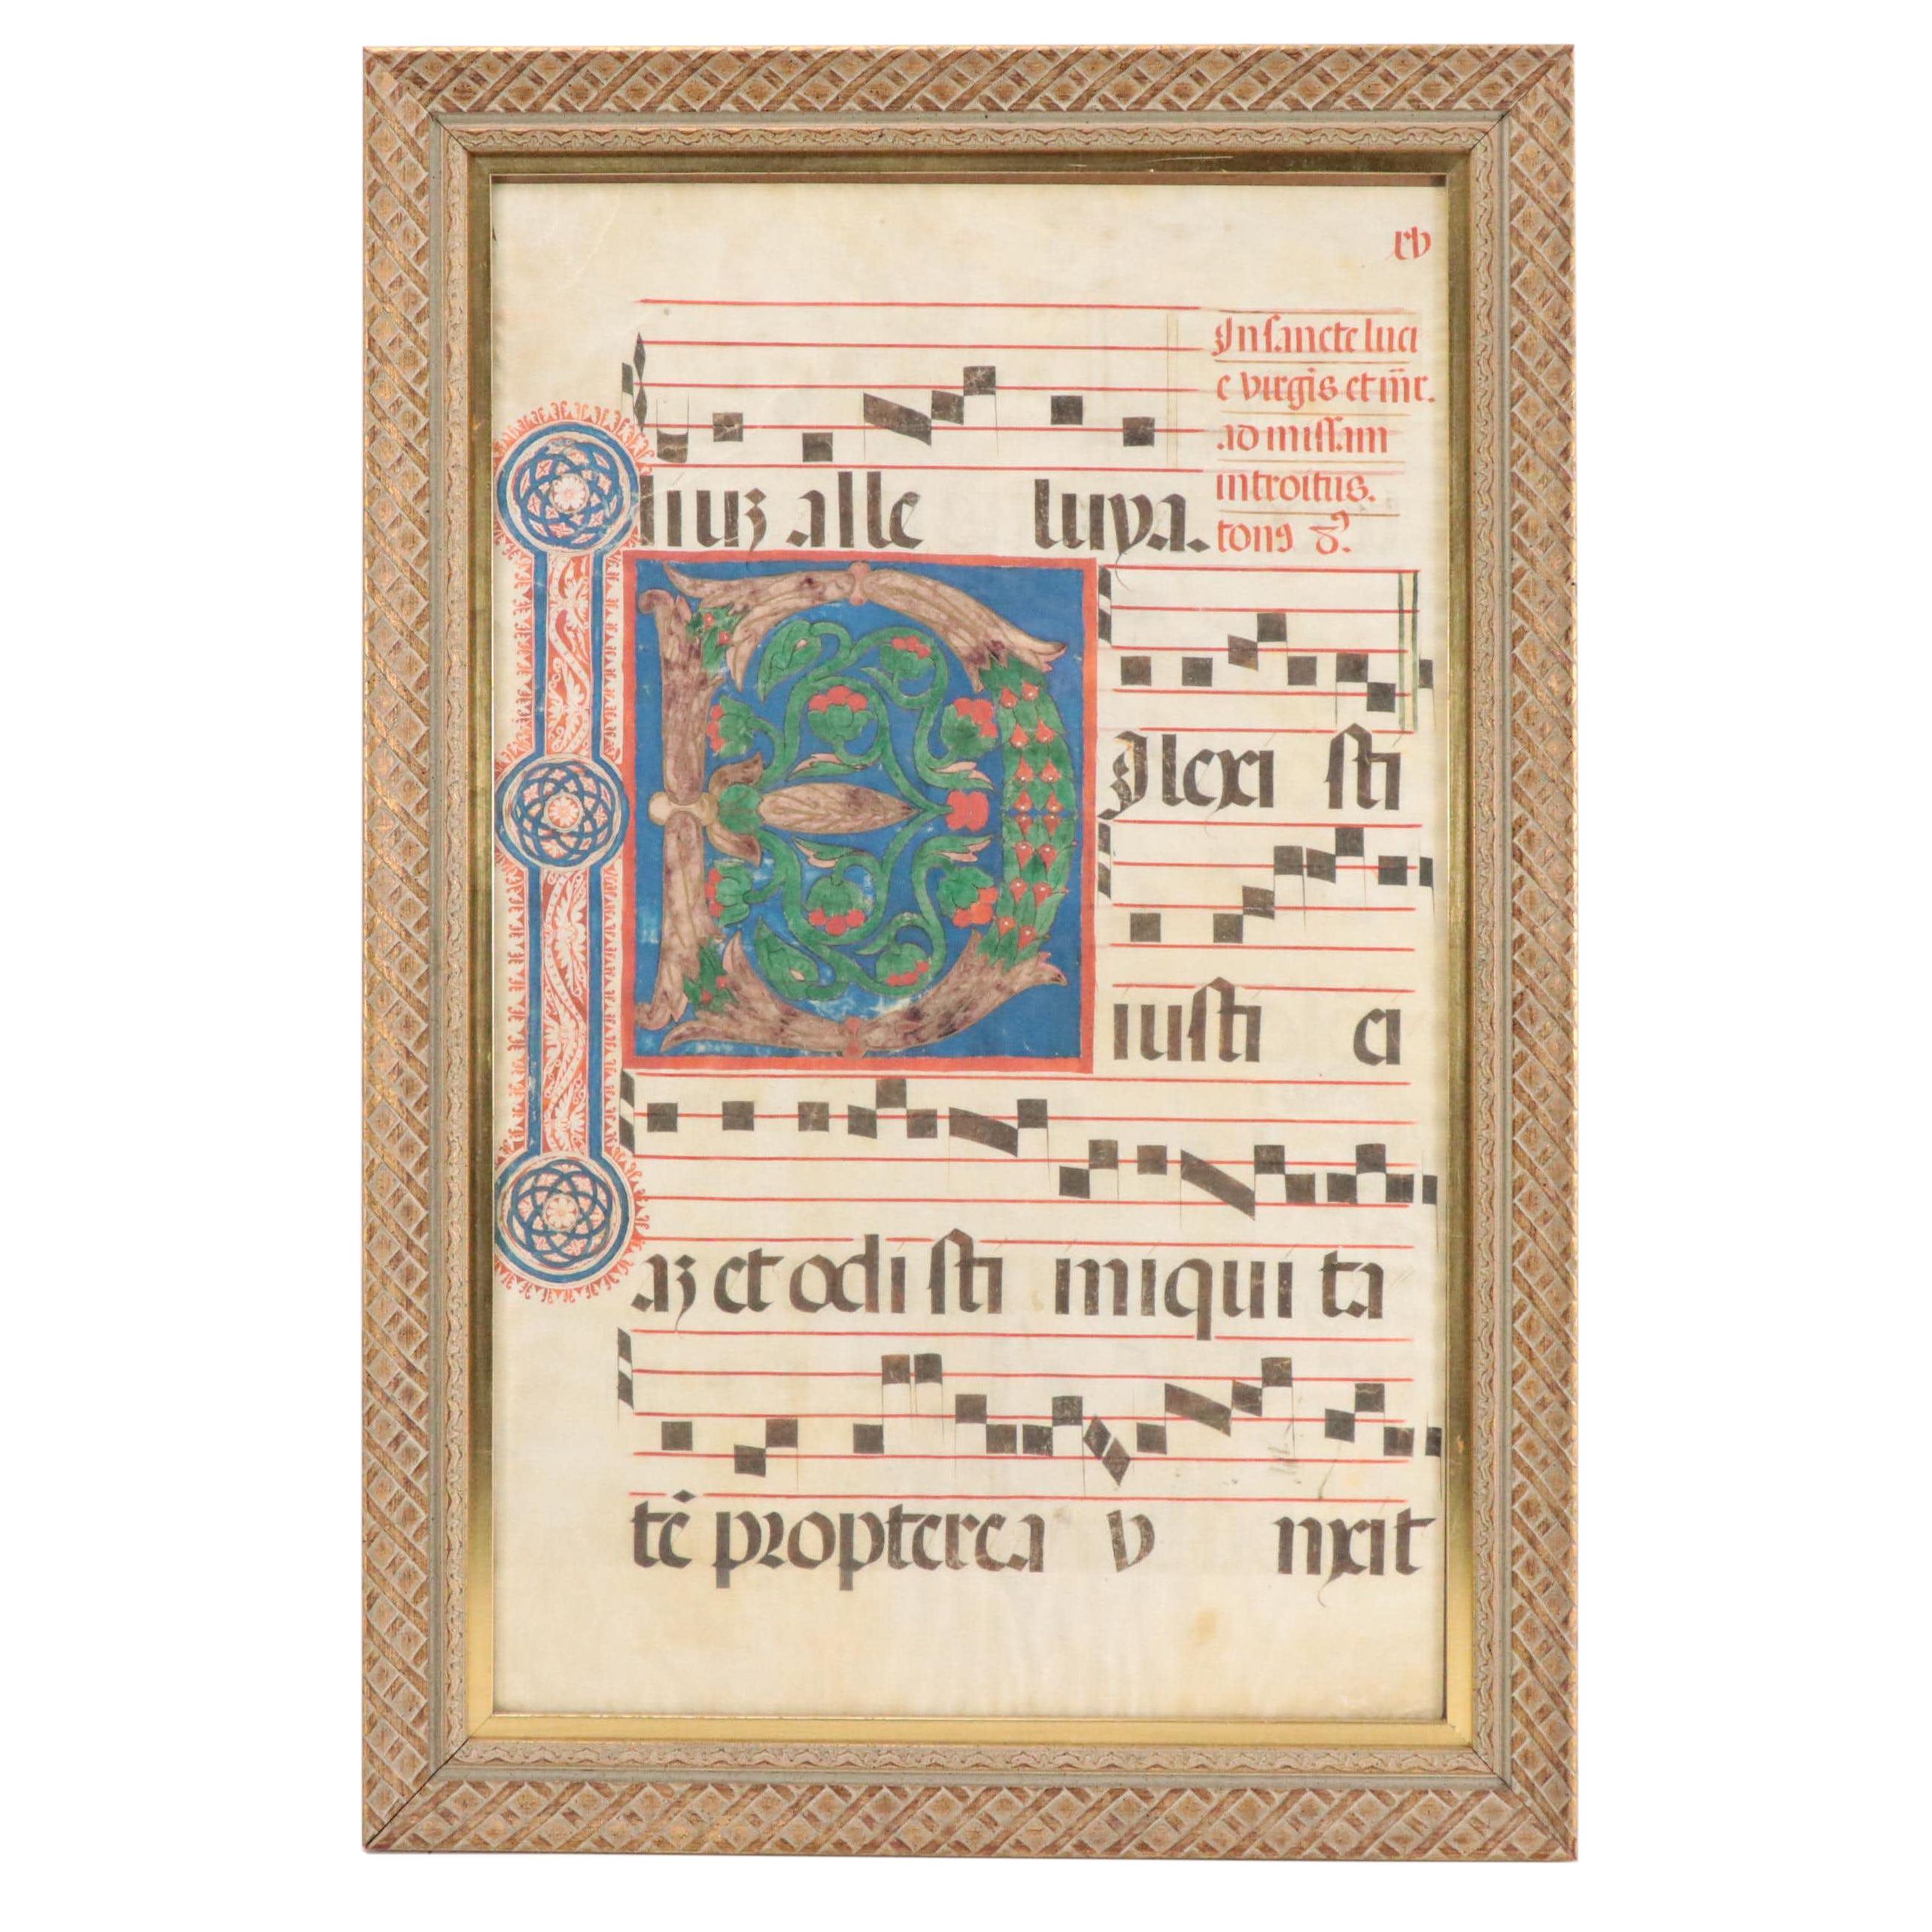 rv
In sancte luci
e virgis et mr.
ad missam
introitus.
ton9 8.
liuz alle luya.
Ilexi sti
iusti ci
az et odi sti iniqui ta
te propterea v nxit